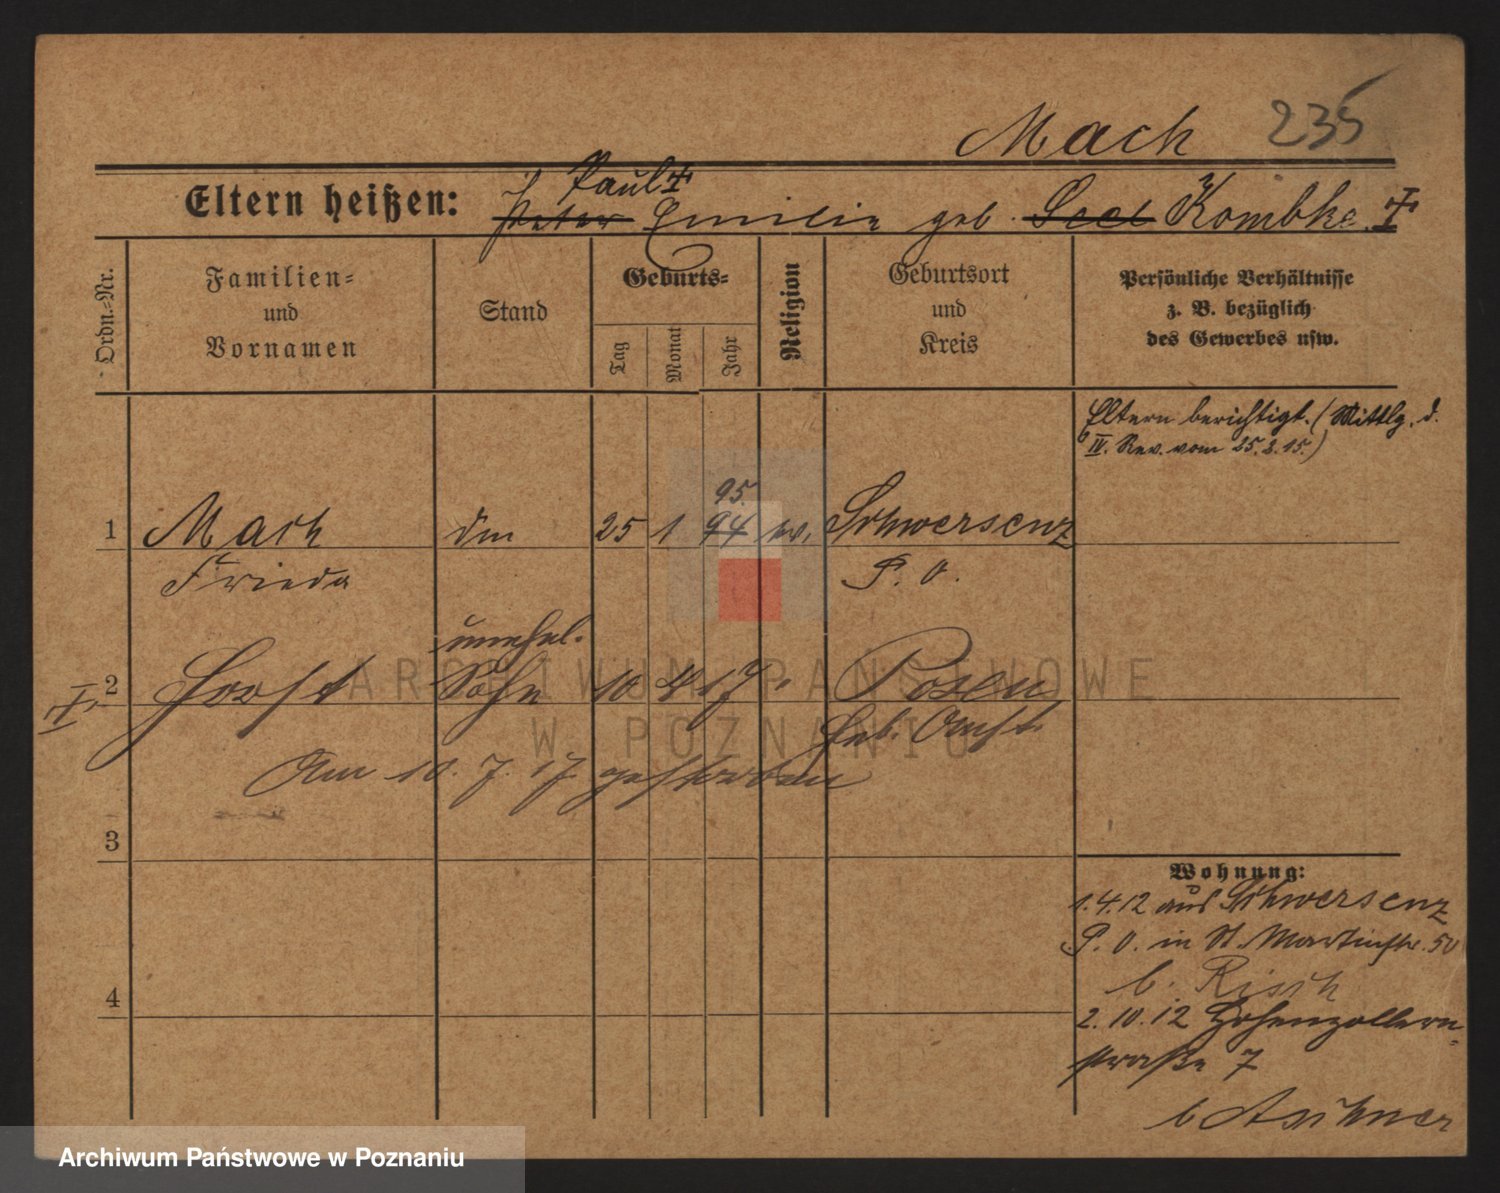 Mach 235
Paul ‡
Eltern heißen: Peter Emilie geb. Seel Kombke. ‡
Ordn.-Nr.
Familien-
und
Vornamen
Stand
Geburts-
Tag
Monat
Jahr
Religion
Geburtsort
und
Kreis
Persönliche Verhältnisse
z. B. bezüglich
des Gewerbes usw.
Eltern berichtigt. (Mittlg. d.
IV. Rev. vom 25.2.15.)
95.
1 Mach 25 1 94 ev. Schwersenz
Frieda P. O.
unehel.
‡ 2 Horst Sohn 10 4 17 Posen
Am 10. 7. 17 gestorben
3
4
Wohnung:
1.4.12 aus Schwersenz
P. O. in St. Martinstr. 50
b. Risch
2.10.12 Hohenzollern-
straße 7
b
ARCHIWUM PAŃSTWOWE
W POZNANIU
Archiwum Państwowe w Poznaniu